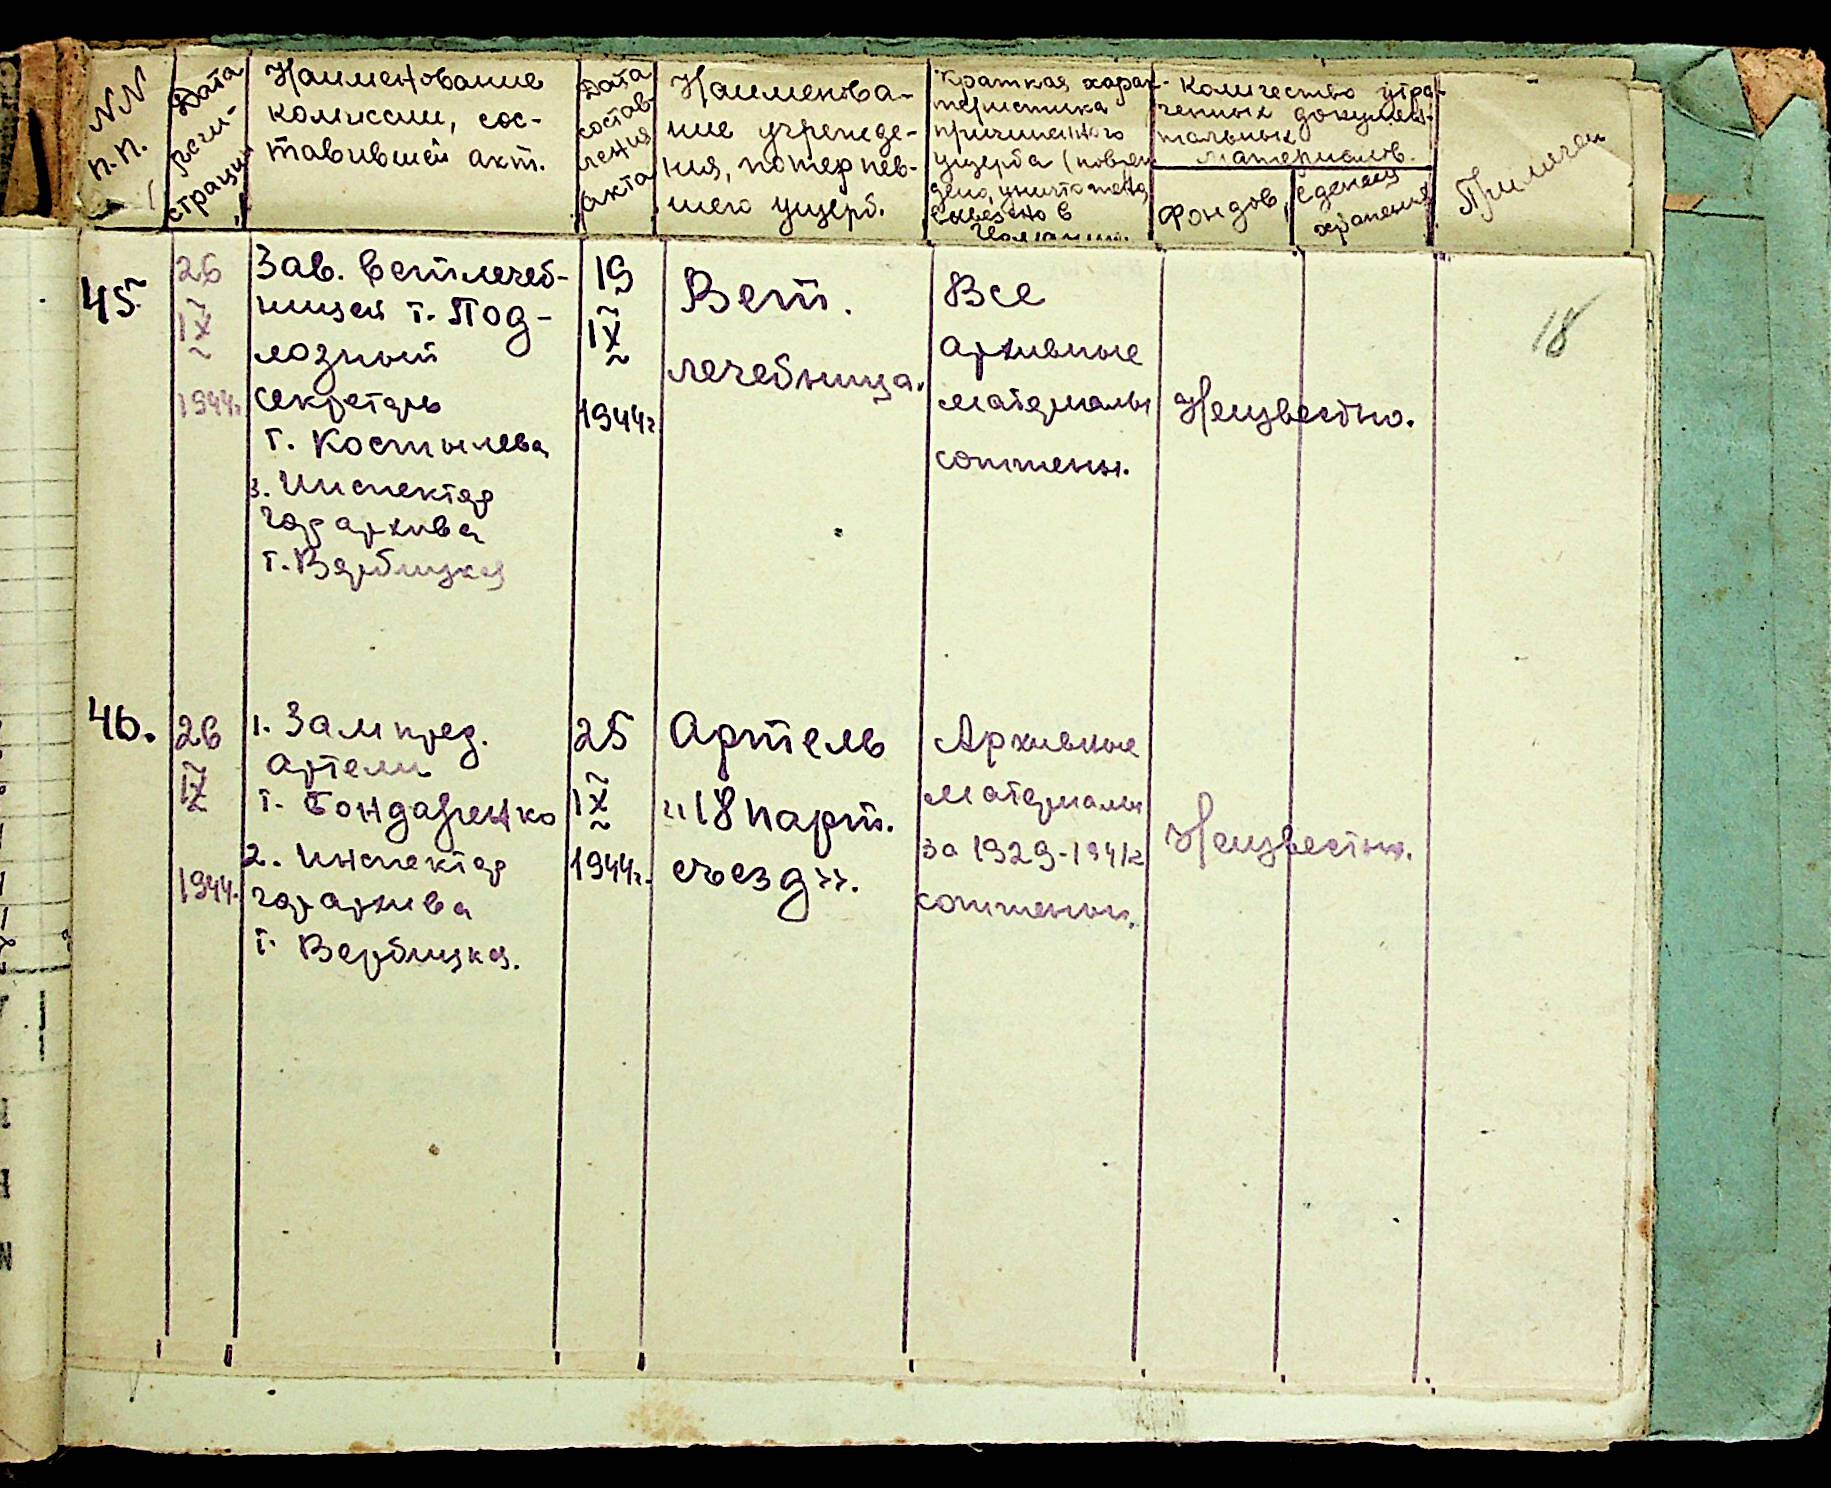 NN
п.п.
Дата
реги-
страции
Наименование
комиссии, сос-
тавившей акт.
Дата
состав
ления
акта
Наименова-
ние учрежде-
ния, потерпев-
шего ущерб.
Краткая харак-
теристика
причиненного
ущерба (повреж
дено, уничтожено,
вывезено в
Германию.
Количество утра-
ченных докумен-
тальных
материалов.
Фондов,
Единиц
хранения
Примечан
18
45.
26
IX
1944г.
Зав. ветлечеб-
ницей т. Под-
лозный
секретарь
т. Костылева
3. Инспектор
горархива
т. Вербицкая
19
IX
1944г
Вет.
лечебница.
Все
архивные
материалы
сожжены.
Неизвестно.
46.
26
IX
1944.
1. Зампред.
артели
т. Бондаренко
2. Инспектор
горархива
т. Вербицкая.
25
IX
1944г.
Артель
"18 парт.
съезд".
Архивные
материалы
за 1929-1941г
сожжены.
Неизвестно.